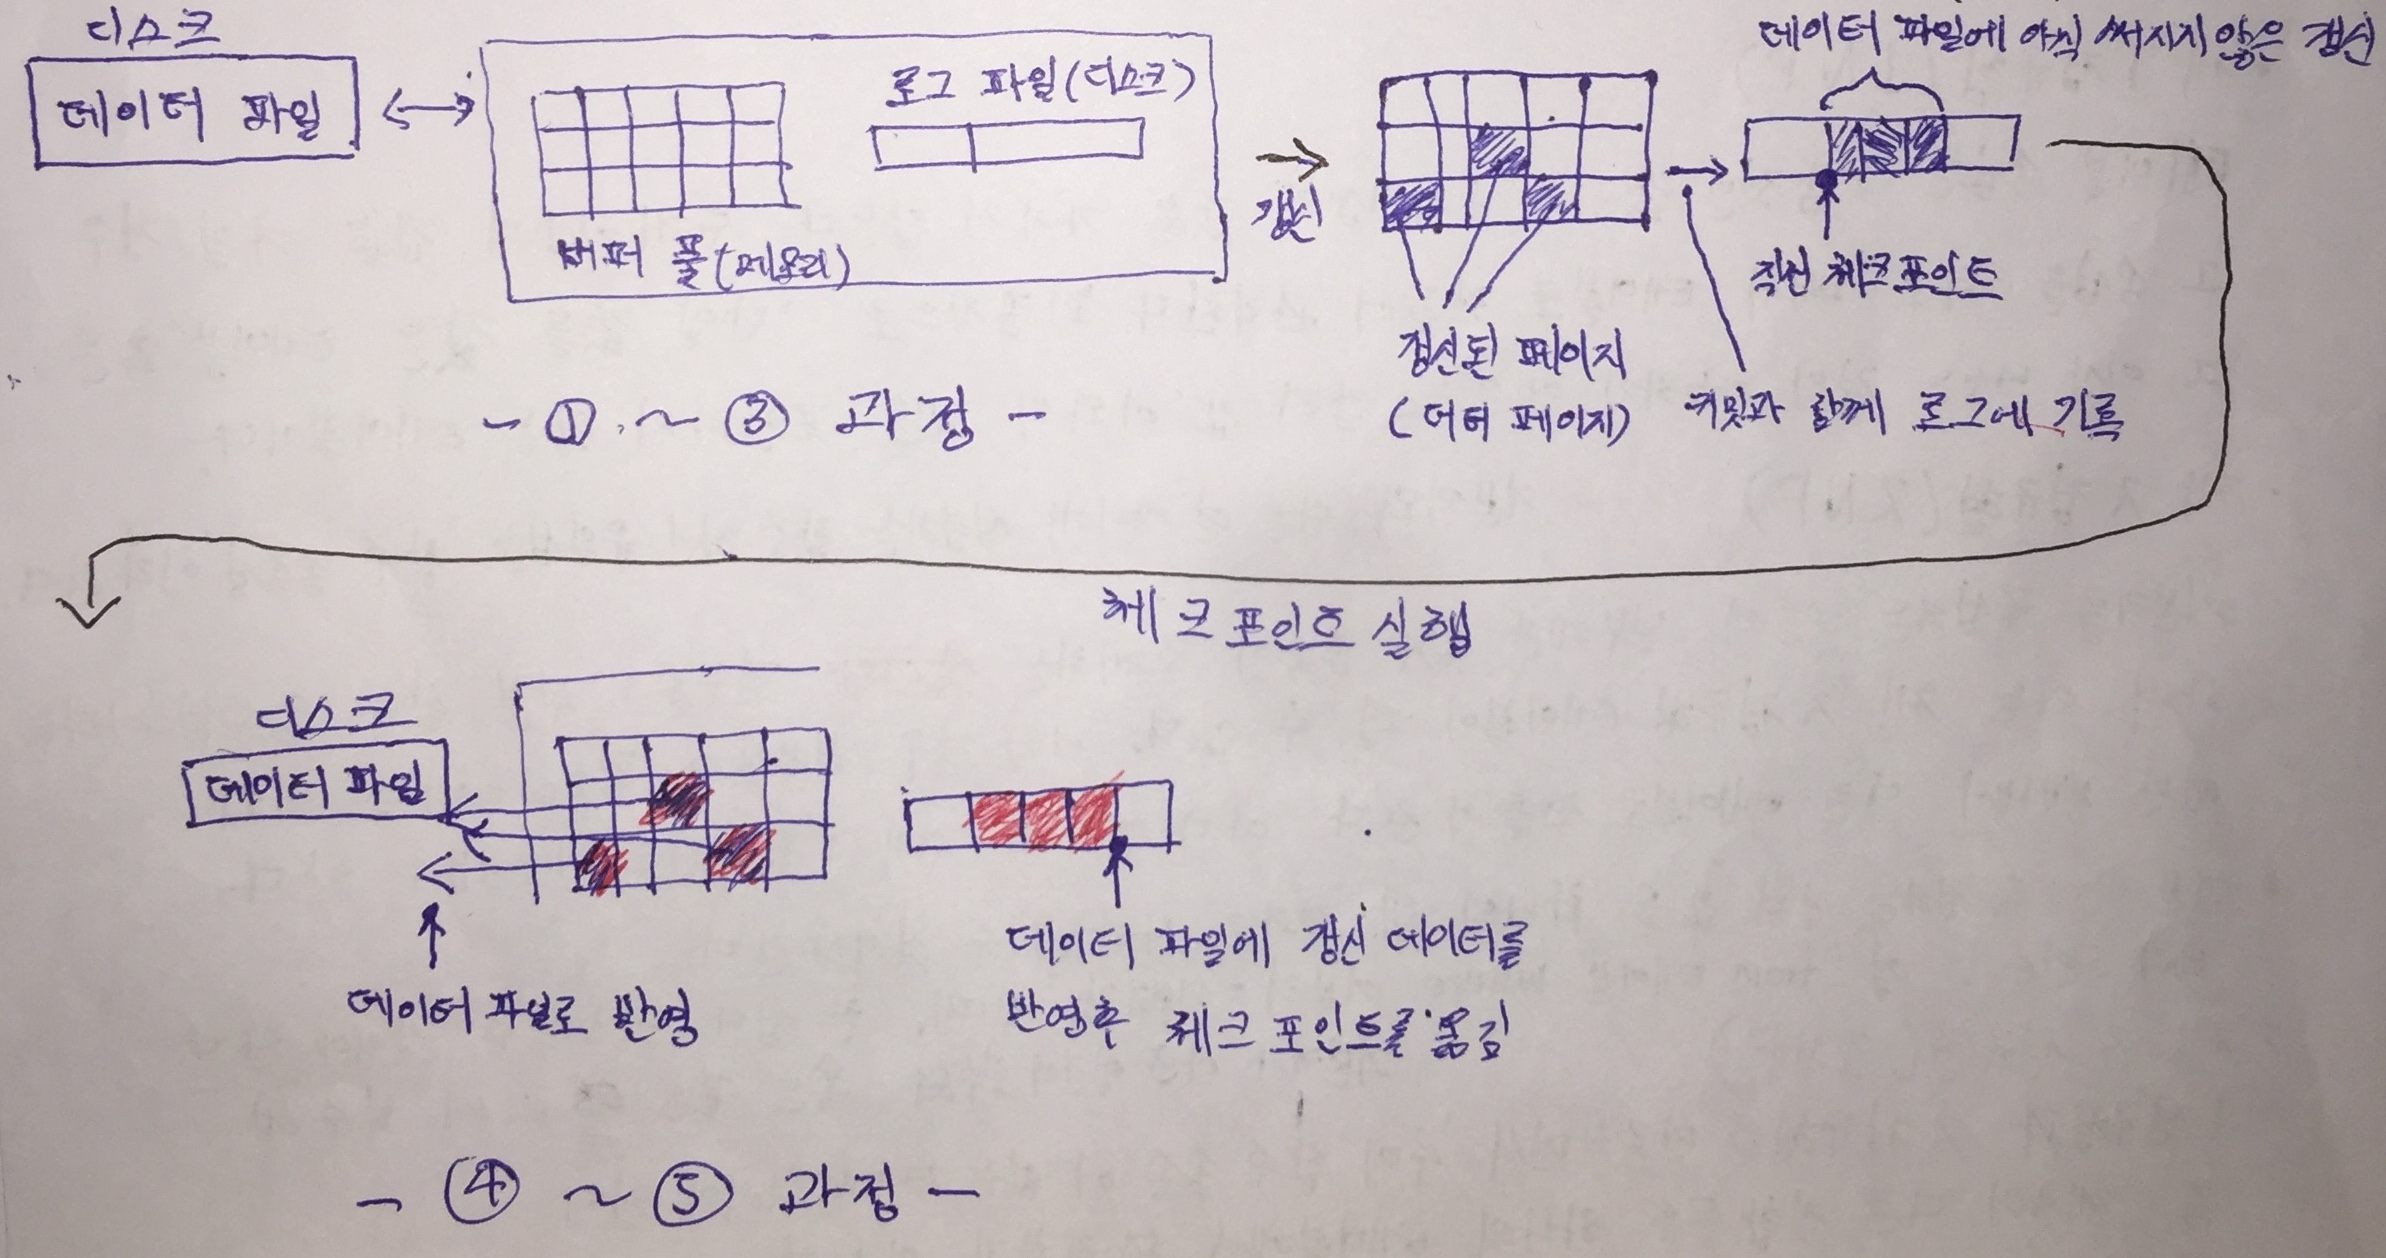 디스크
데이터 파일
로그 파일(디스크)
버퍼 풀(메모리)
갱신
데이터 파일에 아직 써지지 않은 갱신
직전 체크포인트
갱신된 페이지
(더티 페이지)
커밋과 함께 로그에 기록
- ① ~ ③ 과정 -
체크포인트 실행
디스크
데이터 파일
데이터 파일로 반영
데이터 파일에 갱신 데이터를
반영후 체크포인트를 옮김
- ④ ~ ⑤ 과정 -